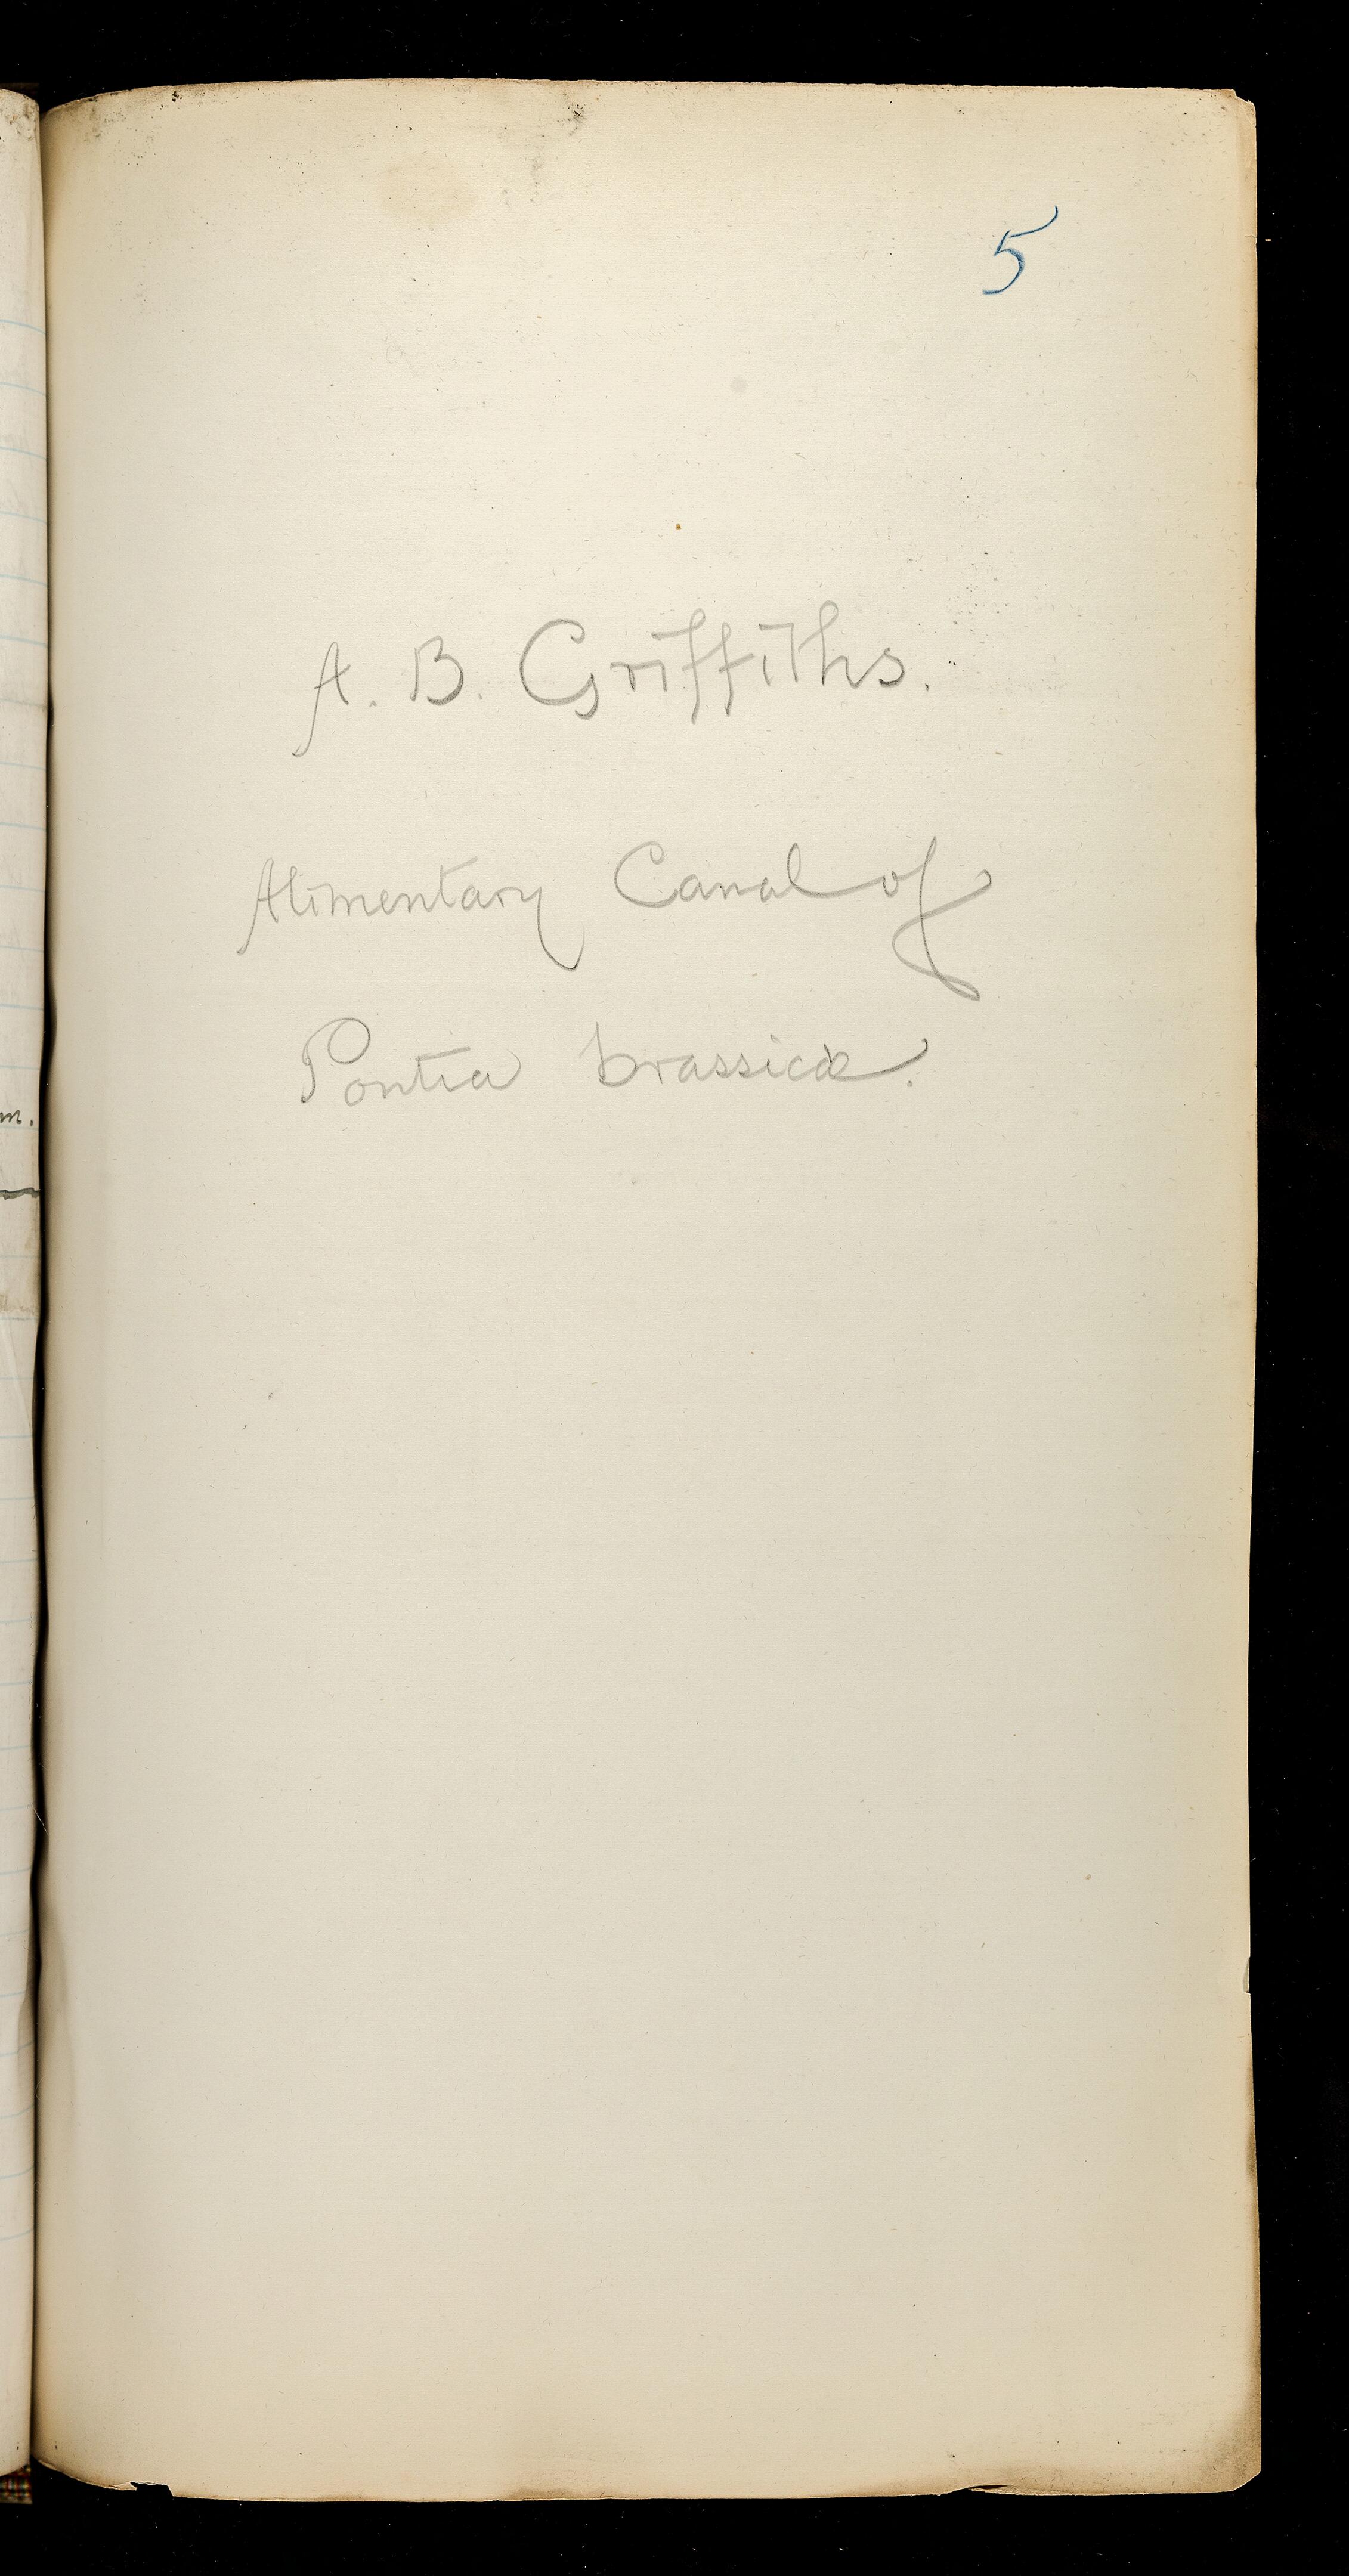 5
A. B. Griffiths.
Alimentary Canal of
Pontia brassicæ.
m.